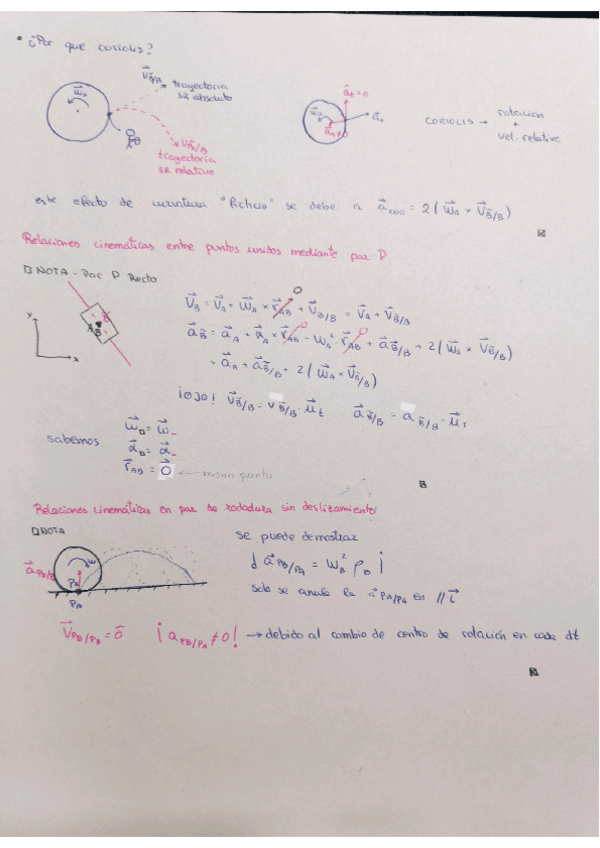 • ¿Por que coriolis?
ω⃗A
V⃗B/A trayectoria
SR absoluto
V⃗B/B
trayectoria
SR relativo
a⃗t=0
ω⃗A
CORIOLIS → rotación
+
vel. relative
este efecto de curvatura se debe a a⃗cor = 2(ω⃗A × V⃗B/B)
Relaciones cinemáticas entre puntos unidos mediante par P
□ NOTA - Par P Recto
y
x
A
B
V⃗B = V⃗A + ω⃗A × r⃗AB + V⃗B/B = V⃗A + V⃗B/B
0
a⃗B = a⃗A + α⃗A × r⃗AB - ωA² · r⃗AB + a⃗B/B + 2(ω⃗A × V⃗B/B)
= a⃗A + a⃗B/B + 2(ω⃗A × V⃗B/B)
¡OJO! V⃗B/B = VB/B · μ⃗t a⃗B/B = aB/B · μ⃗t
sabemos
r⃗AB = 0⃗ ← mismo punto
Relaciones cinemáticas en par de rodadura sin deslizamiento
□ NOTA
a⃗PB/PA
ω
PB
PA
se puede demostrar
a⃗PB/PA = ωB² ρB j
solo se anula la a⃗PA/PB en // i⃗
V⃗PB/PB = 0⃗ ¡aPB/PA ≠ 0! → debido al cambio de centro de rotación en cada dt